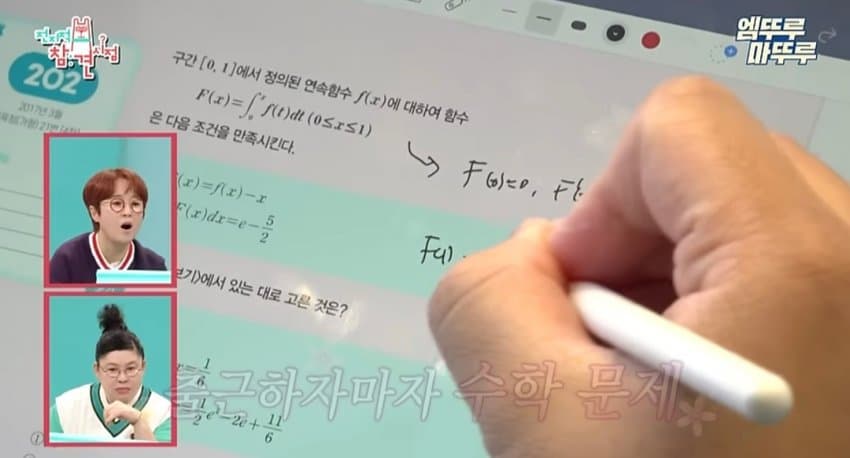 전지적
참견시점
엠뚜루
마뚜루
202
2017년 3월
21번
구간 [0, 1]에서 정의된 연속함수 f(x)에 대하여 함수
F(x)=∫₀ˣ f(t)dt (0≤x≤1)
은 다음 조건을 만족시킨다.
F(0)=0, F
(x)=f(x)-x
F(x)dx=e-5/2
F(1)
보기)에서 있는 대로 고른 것은?
x=1/6
1/2 e²-2e+11/6
출근하자마자 수학 문제